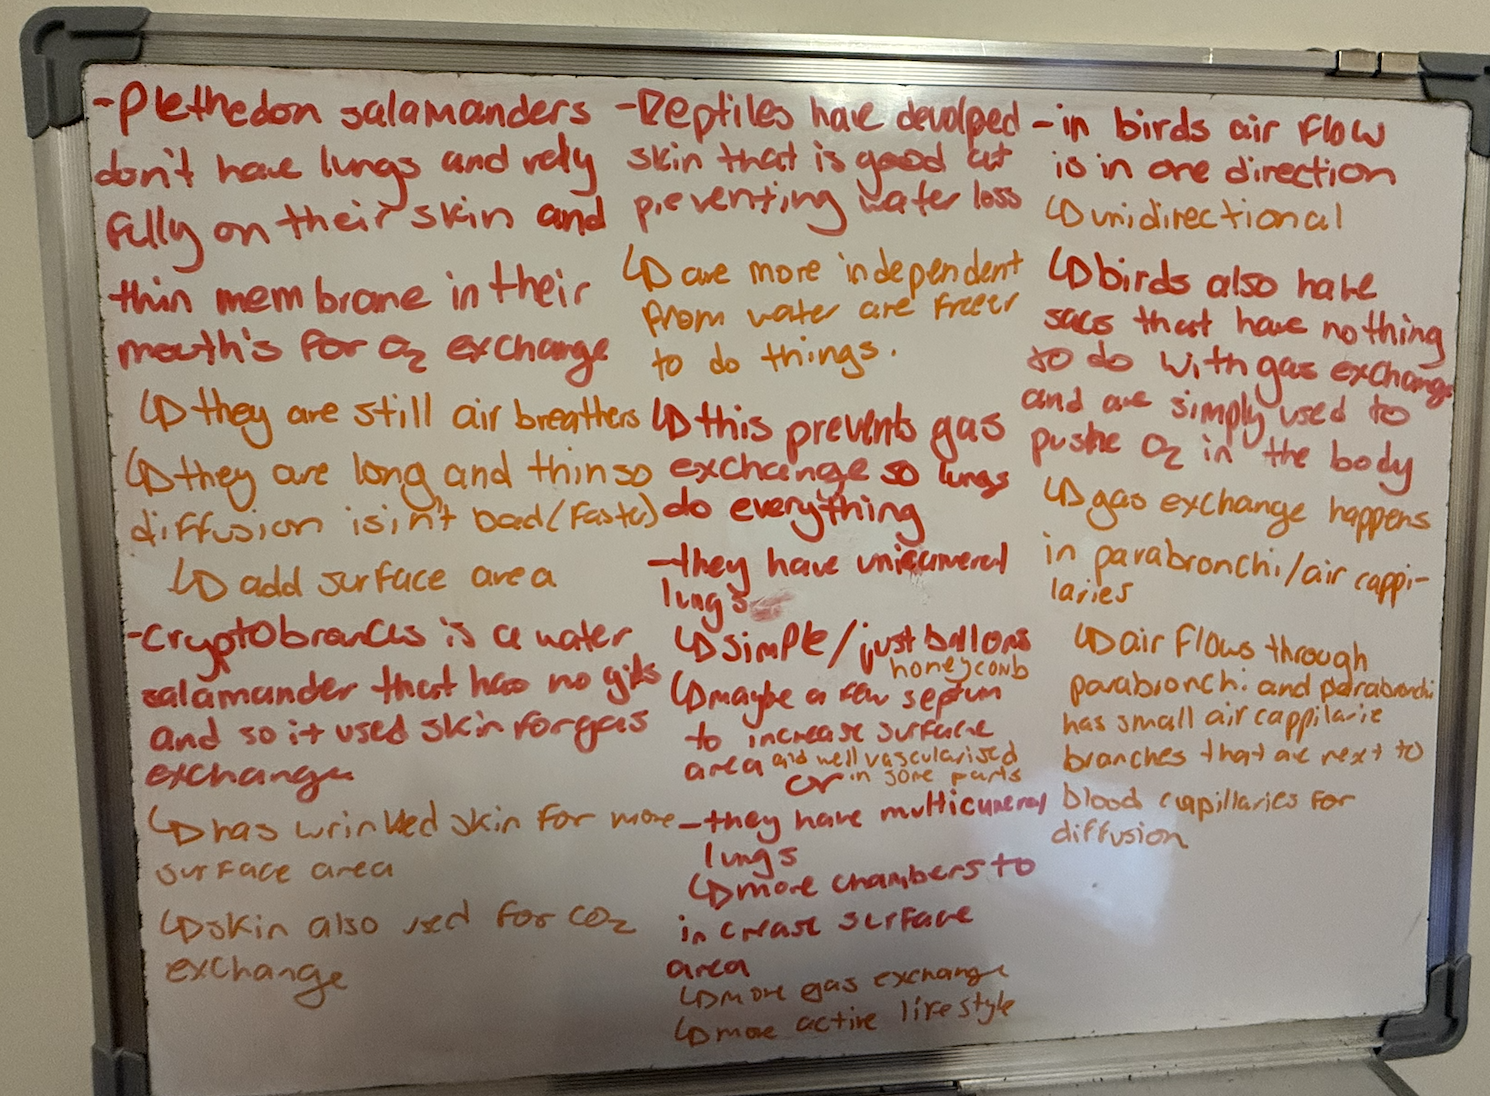 -Plethedon salamanders
don't have lungs and rely
fully on their skin and
thin membrane in their
mouth's for O2 exchange
↳they are still air breathers
↳they are long and thin so
diffusion isin't bad (faste)
↳ add surface area
-cryptobrances is a water
salamander that has no gills
and so it used skin for gas
exchange
↳has wrinkled skin for more
surface area
↳skin also used for CO2
exchange
-Reptiles have devolped
skin that is good at
preventing water loss
↳ are more independent
from water are freer
to do things.
↳this prevents gas
exchange so lungs
do everything
-they have unicameral
lungs
↳simple/just ballons
honeycomb
↳maybe a few septum
to increase surface
area and well vascularised
or in some parts
-they have multicumeral
lungs
↳more chambers to
increase surface
area
↳more gas exchange
↳more active lifestyle
-in birds air flow
is in one direction
↳unidirectional
↳birds also have
sacs that have nothing
to do with gas exchange
and are simply used to
pushe O2 in the body
↳gas exchange happens
in parabronchi/air cappi-
laries
↳air flows through
parabronchi and parabronchi
has small air cappilarie
branches that are next to
blood cappillaries for
diffusion